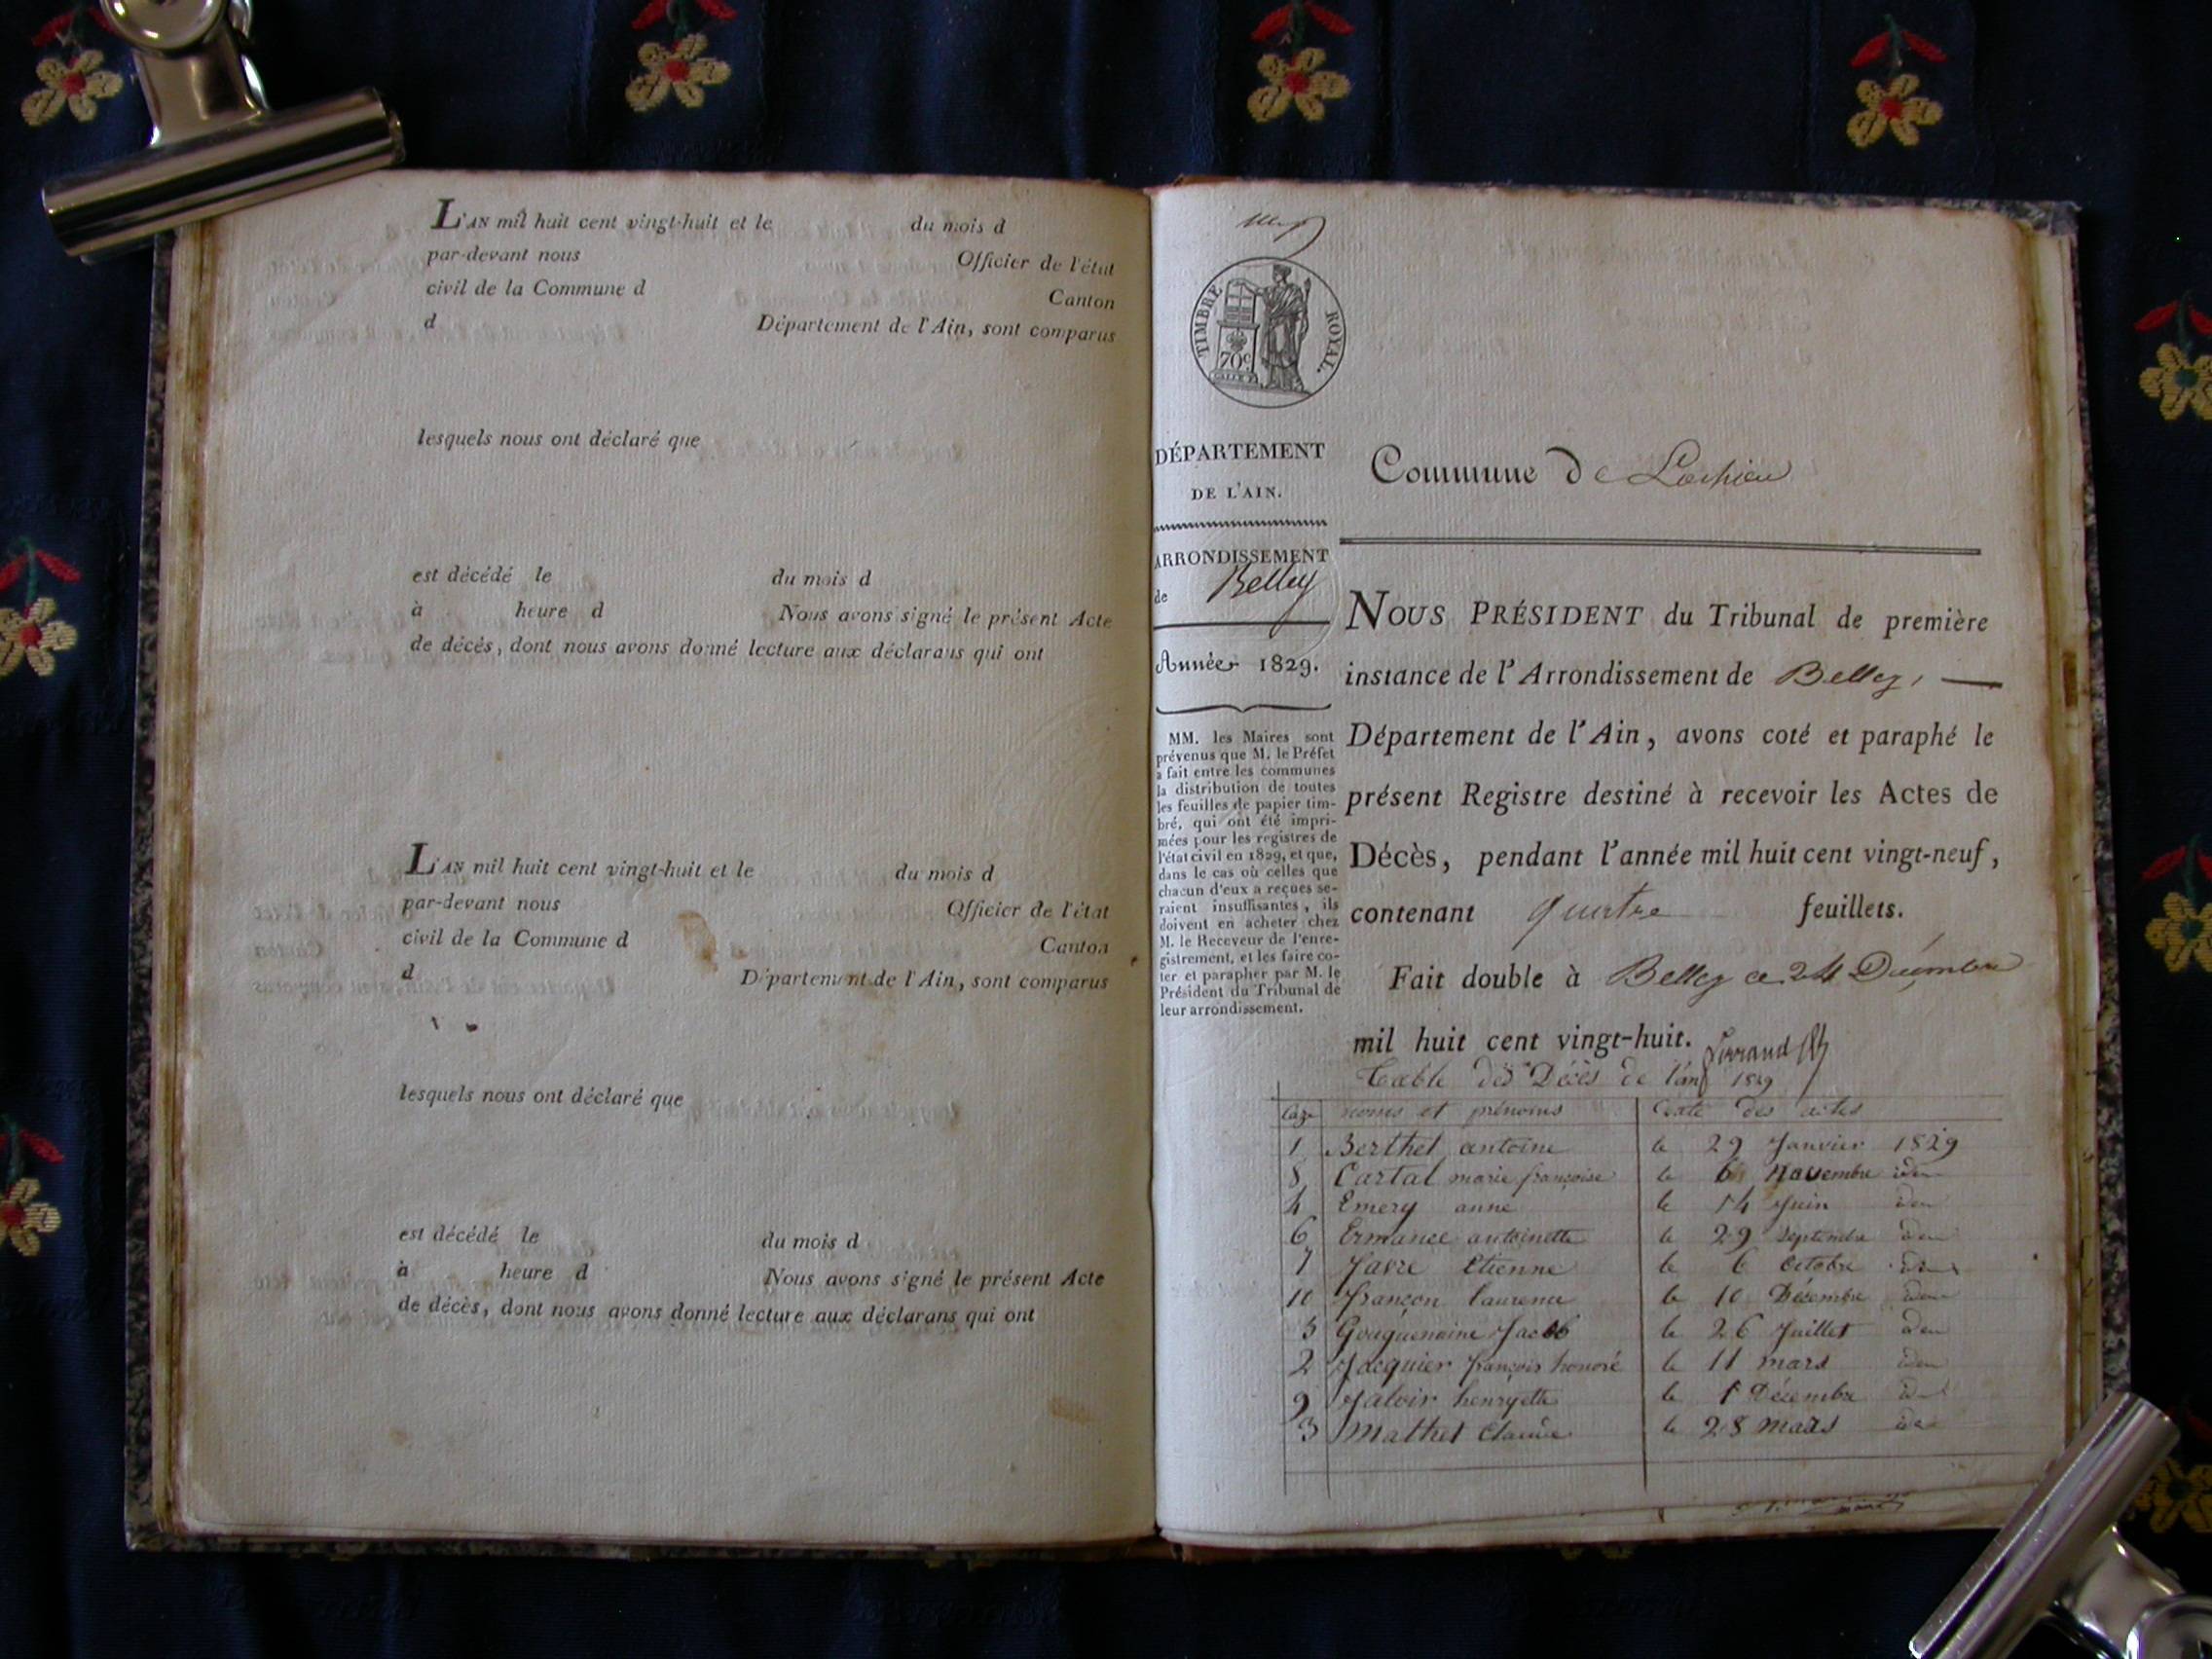 L'AN mil huit cent vingt-huit et le du mois d
par-devant nous Officier de l'état
civil de la Commune d Canton
d Département de l'Ain, sont comparus
lesquels nous ont déclaré que
est décédé le du mois d
à heure d Nous avons signé le présent Acte
de décès, dont nous avons donné lecture aux déclarans qui ont
L'AN mil huit cent vingt-huit et le du mois d
par-devant nous Officier de l'état
civil de la Commune d Canton
d Département de l'Ain, sont comparus
lesquels nous ont déclaré que
est décédé le du mois d
à heure d Nous avons signé le présent Acte
de décès, dont nous avons donné lecture aux déclarans qui ont
TIMBRE ROYAL.
70c
DÉPARTEMENT
DE L'AIN.
ARRONDISSEMENT
de Belley
Année 1829.
MM. les Maires sont
prévenus que M. le Préfet
a fait entre les communes
la distribution de toutes
les feuilles de papier tim-
bré, qui ont été impri-
mées pour les registres de
l'état civil en 1829, et que,
dans le cas où celles que
chacun d'eux a reçues se-
raient insuffisantes, ils
doivent en acheter chez
M. le Receveur de l'enre-
gistrement, et les faire co-
ter et parapher par M. le
Président du Tribunal de
leur arrondissement.
Commune de Lochieu
NOUS PRÉSIDENT du Tribunal de première
instance de l'Arrondissement de Belley,
Département de l'Ain, avons coté et paraphé le
présent Registre destiné à recevoir les Actes de
Décès, pendant l'année mil huit cent vingt-neuf,
contenant quatre feuillets.
Fait double à Belley ce 24 Décembre
mil huit cent vingt-huit.
Table des Décès de l'an 1829
noms et prénoms date des actes
1 Berthet antoine le 29 Janvier 1829
8 Cartal marie françoise le 6 Novembre idem
4 Emery anne le 14 Juin idem
6 Ermance antoinette le 29 Septembre idem
7 Favre Etienne le 6 Octobre idem
10 françon laurence le 10 Décembre idem
5 Jacob le 26 Juillet idem
2 Jacquier françois honoré le 11 mars idem
9 Jaloir henryette le 1 Décembre idem
3 Mathet Claude le 28 mars idem